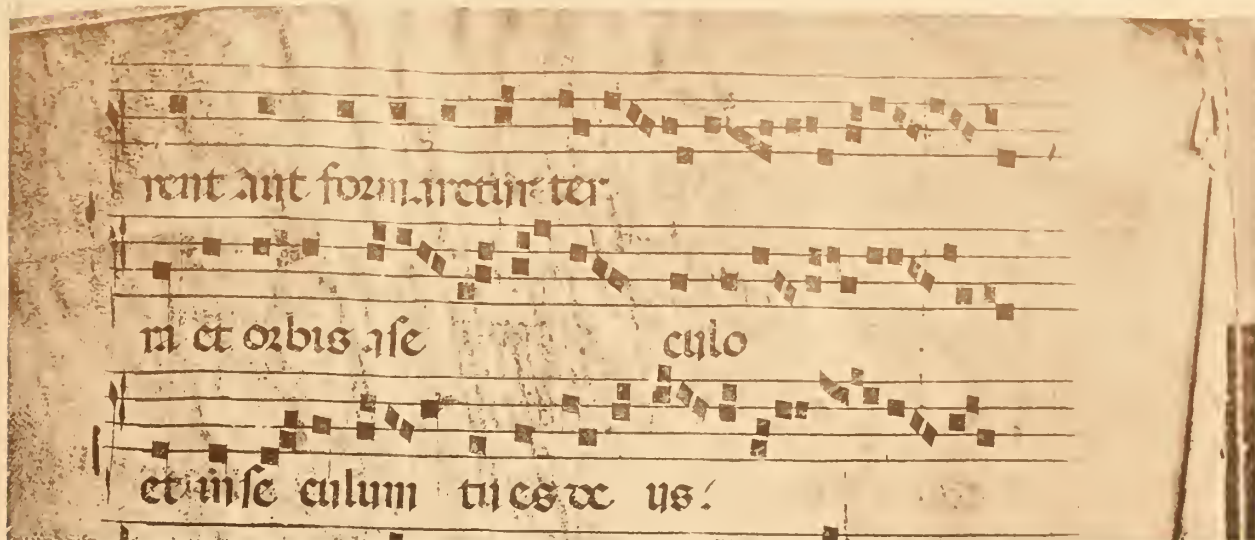 rent aut formaretur ter
ra et orbis a se culo
et in se culum tu es de us.